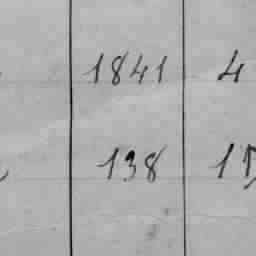 1841 4
138